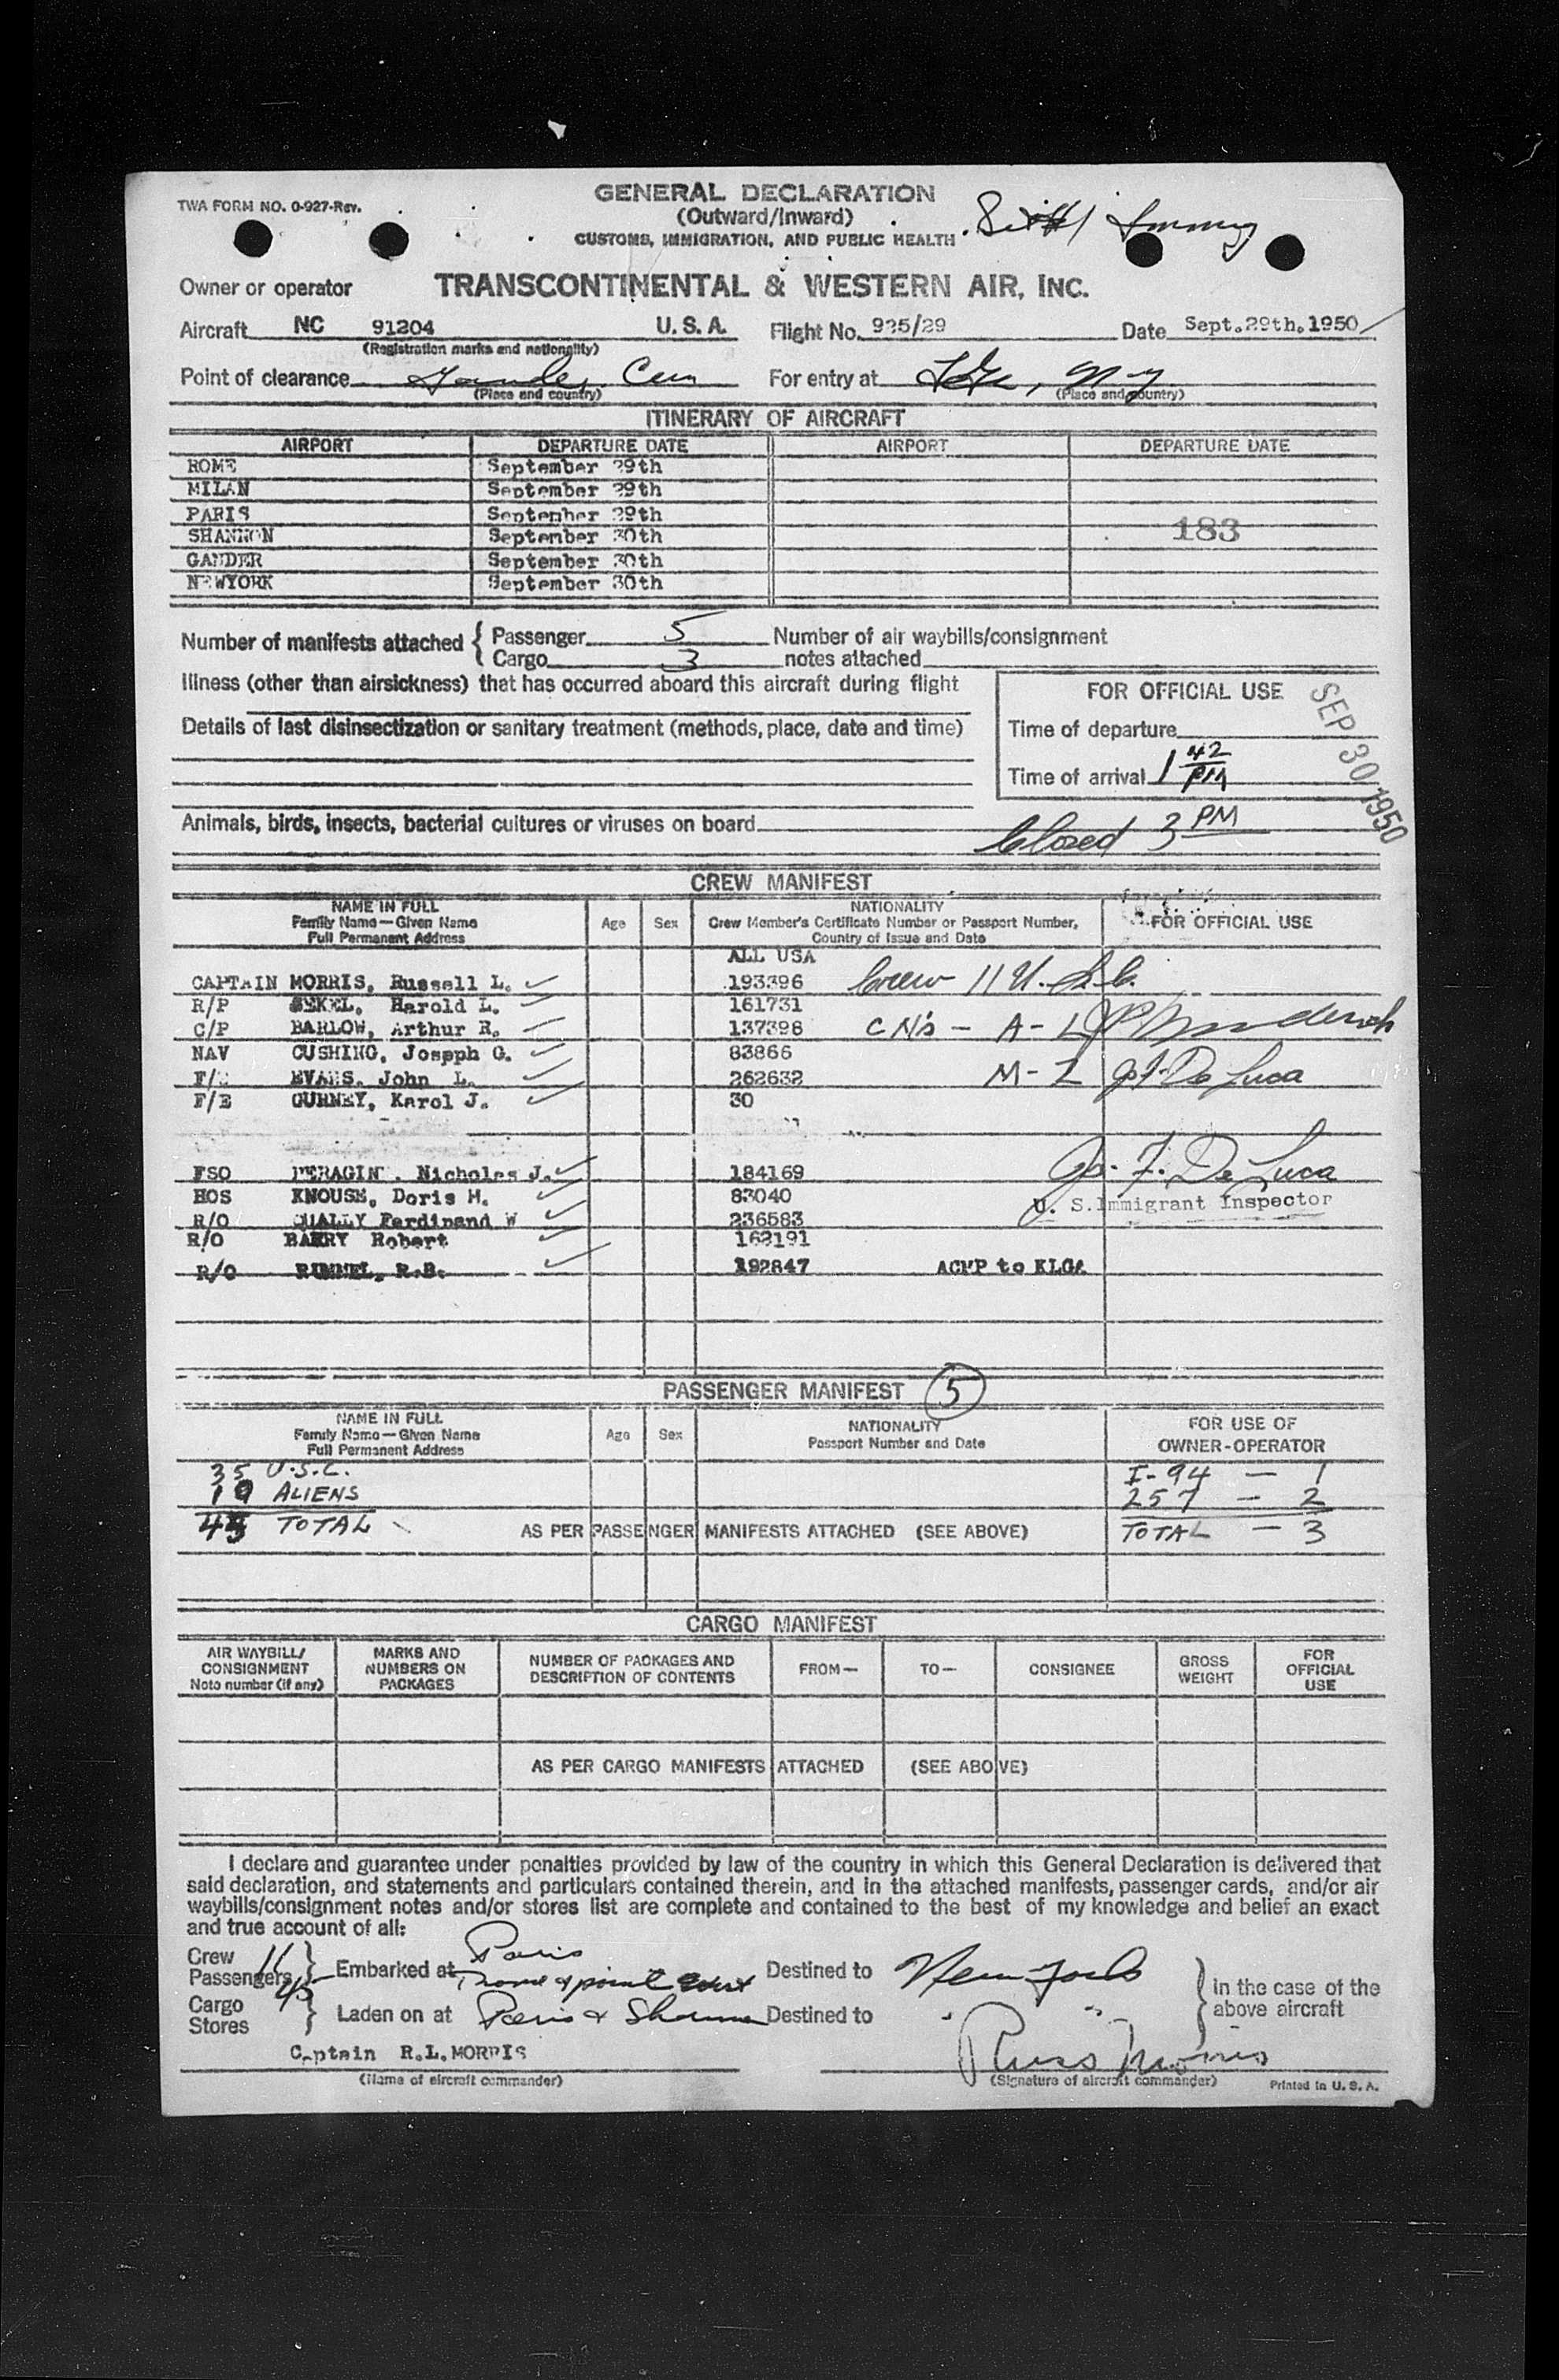 TWA FORM NO. 0-927-Rev.
GENERAL DECLARATION
(Outward/Inward)
CUSTOMS, IMMIGRATION, AND PUBLIC HEALTH
Owner or operator TRANSCONTINENTAL & WESTERN AIR, INC.
Aircraft NC 91204 U. S. A. Flight No. 925/29 Date Sept.29th.1950
(Registration marks and nationality)
Point of clearance Gander Can For entry at N.Y
(Place and country) (Place and country)
ITINERARY OF AIRCRAFT
AIRPORT DEPARTURE DATE AIRPORT DEPARTURE DATE
ROME September 29th
MILAN September 29th
PARIS September 29th
SHANNON September 30th 183
GANDER September 30th
NEWYORK September 30th
Number of manifests attached { Passenger 5 Number of air waybills/consignment
Cargo 3 notes attached
Illness (other than airsickness) that has occurred aboard this aircraft during flight
FOR OFFICIAL USE
SEP 30 1950
Details of last disinsectization or sanitary treatment (methods, place, date and time)
Time of departure
Time of arrival 1 42 PM
Animals, birds, insects, bacterial cultures or viruses on board
Closed 3 PM
CREW MANIFEST
NAME IN FULL Family Name—Given Name Full Permanent Address Age Sex NATIONALITY Crew Member's Certificate Number or Passport Number, Country of Issue and Date FOR OFFICIAL USE
ALL USA
CAPTAIN MORRIS, Russell L. 193396 Crew 11 U.S.C.
R/P SEKEL, Harold L. 161731
C/P BARLOW, Arthur R. 137398 CN's - A - L
NAV CUSHING, Joseph G. 83866
F/E EVANS, John L. 262632 M - Z Jo. F. De Luca
F/E GURNEY, Karol J. 30
FSO Nicholas J. 184169 Jo. F. De Luca
HOS KNOUSE, Doris H. 83040 U. S. Immigrant Inspector
R/O QUALLY Ferdinand W 236583
R/O BARRY Robert 162191
R/O RUMMEL, R.B. 192847 ACMP to KLGA
PASSENGER MANIFEST 5
NAME IN FULL Family Name—Given Name Full Permanent Address Age Sex NATIONALITY Passport Number and Date FOR USE OF OWNER-OPERATOR
35 U.S.C. I-94 — 1
10 ALIENS 257 — 2
45 TOTAL AS PER PASSENGER MANIFESTS ATTACHED (SEE ABOVE) TOTAL — 3
CARGO MANIFEST
AIR WAYBILL/ CONSIGNMENT Note number (if any) MARKS AND NUMBERS ON PACKAGES NUMBER OF PACKAGES AND DESCRIPTION OF CONTENTS FROM— TO— CONSIGNEE GROSS WEIGHT FOR OFFICIAL USE
AS PER CARGO MANIFESTS ATTACHED (SEE ABOVE)
I declare and guarantee under penalties provided by law of the country in which this General Declaration is delivered that
said declaration, and statements and particulars contained therein, and in the attached manifests, passenger cards, and/or air
waybills/consignment notes and/or stores list are complete and contained to the best of my knowledge and belief an exact
and true account of all:
Crew 11 Paris
Passengers 45 } Embarked at Rome & point Destined to New York } In the case of the
Cargo
Stores } Laden on at Paris & Shannon Destined to " " above aircraft
Captain R.L.MORRIS Russ Morris
(Name of aircraft commander) (Signature of aircraft commander) Printed in U. S. A.